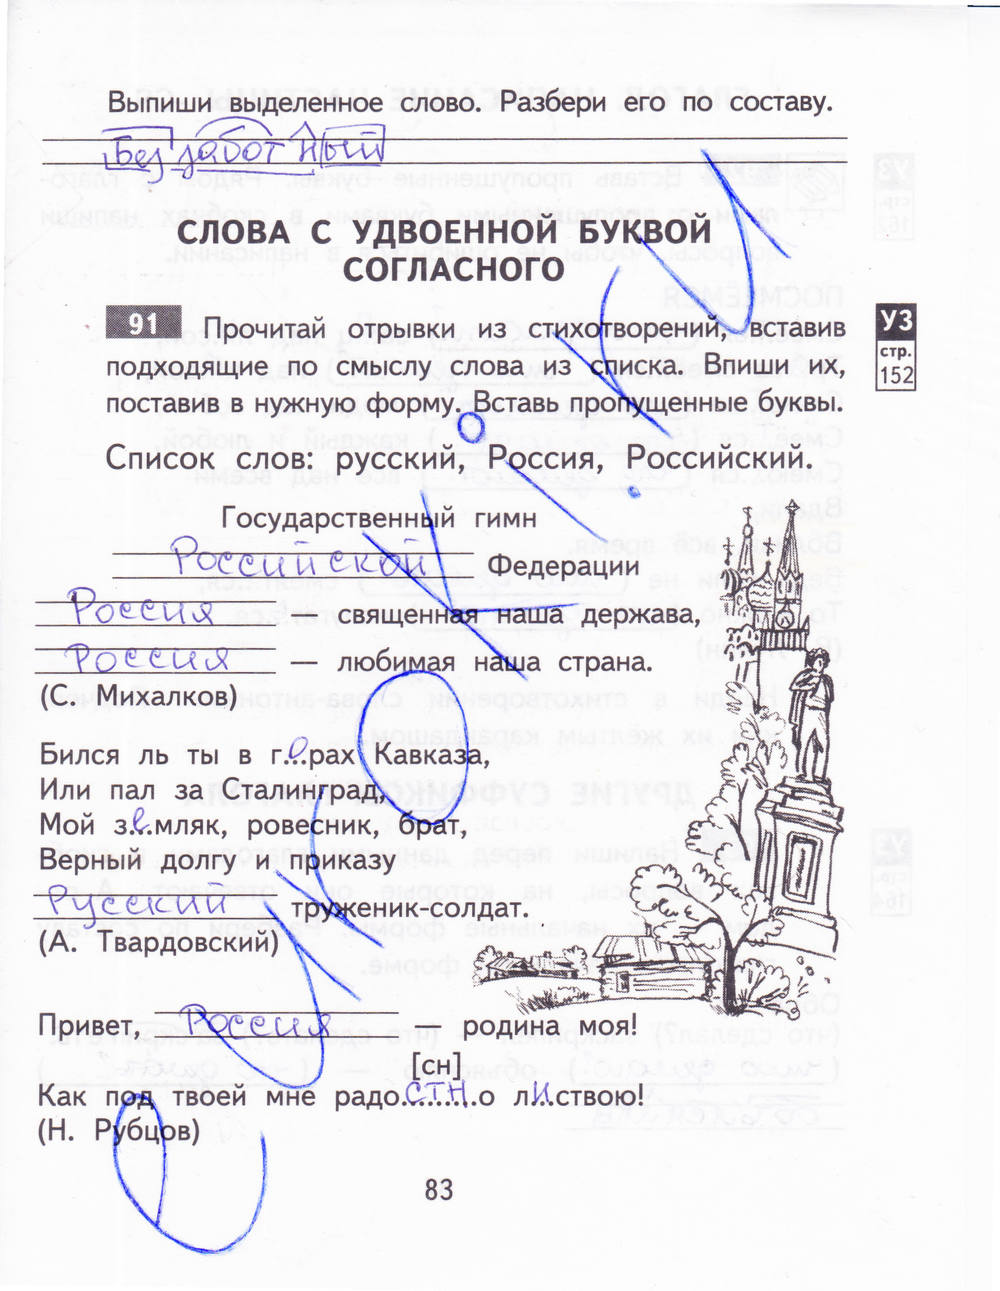 Выпиши выделенное слово. Разбери его по составу.
Беззаботный
СЛОВА С УДВОЕННОЙ БУКВОЙ
СОГЛАСНОГО
91 Прочитай отрывки из стихотворений, вставив
подходящие по смыслу слова из списка. Впиши их,
поставив в нужную форму. Вставь пропущенные буквы.
У3
стр.
152
Список слов: русский, Россия, Российский.
Государственный гимн
Российской Федерации
Россия — священная наша держава,
Россия — любимая наша страна.
(С. Михалков)
Бился ль ты в г.о.рах Кавказа,
Или пал за Сталинград,
Мой з.е.мляк, ровесник, брат,
Верный долгу и приказу
Русский труженик-солдат.
(А. Твардовский)
Привет, Россия — родина моя!
[сн]
Как под твоей мне радо.стн.о л.и.ствою!
(Н. Рубцов)
83